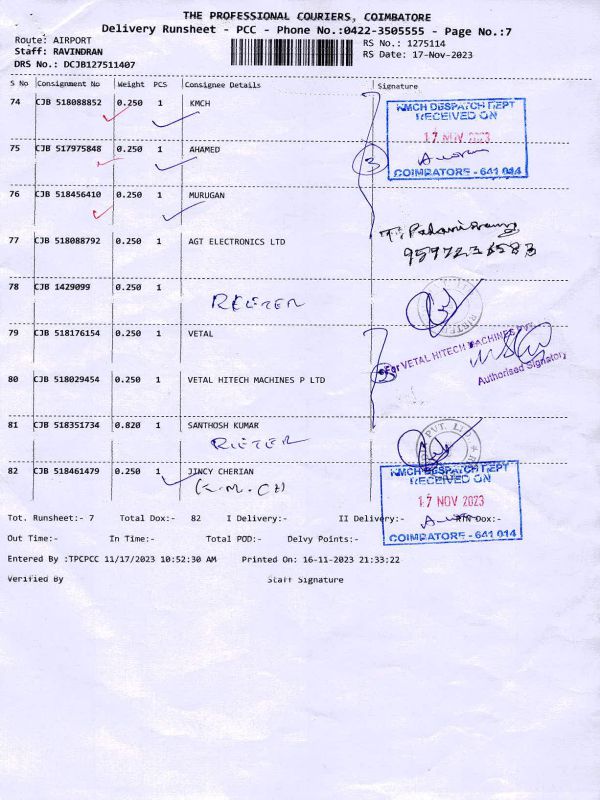 THE PROFESSIONAL COURIERS, COIMBATORE
Delivery Runsheet - PCC - Phone No.:0422-3505555 - Page No.:7
Route: AIRPORT RS No.: 1275114
Staff: RAVINDRAN RS Date: 17-Nov-2023
DRS No.: DCJB127511407
S No Consignment No Weight PCS Consignee Details Signature
74 CJB 518088852 0.250 1 KMCH
KMCH DESPATCH DEPT
RECEIVED ON
17 NOV 2023
COIMBATORE - 641 014
75 CJB 517975848 0.250 1 AHAMED
3
76 CJB 518456410 0.250 1 MURUGAN
77 CJB 518088792 0.250 1 AGT ELECTRONICS LTD
9597236583
78 CJB 1429099 0.250 1
RIETER
79 CJB 518176154 0.250 1 VETAL
For VETAL HITECH MACHINES Pvt.
Authorised Signatory
80 CJB 518029454 0.250 1 VETAL HITECH MACHINES P LTD
81 CJB 518351734 0.820 1 SANTHOSH KUMAR
RIETER
82 CJB 518461479 0.250 1 JINCY CHERIAN
(K.M.CH)
KMCH DESPATCH DEPT
RECEIVED ON
17 NOV 2023
COIMBATORE - 641 014
Tot. Runsheet:- 7 Total Dox:- 82 I Delivery:- II Delivery:- Dox:-
Out Time:- In Time:- Total POD:- Delvy Points:-
Entered By :TPCPCC 11/17/2023 10:52:30 AM Printed On: 16-11-2023 21:33:22
Verified By Staff Signature